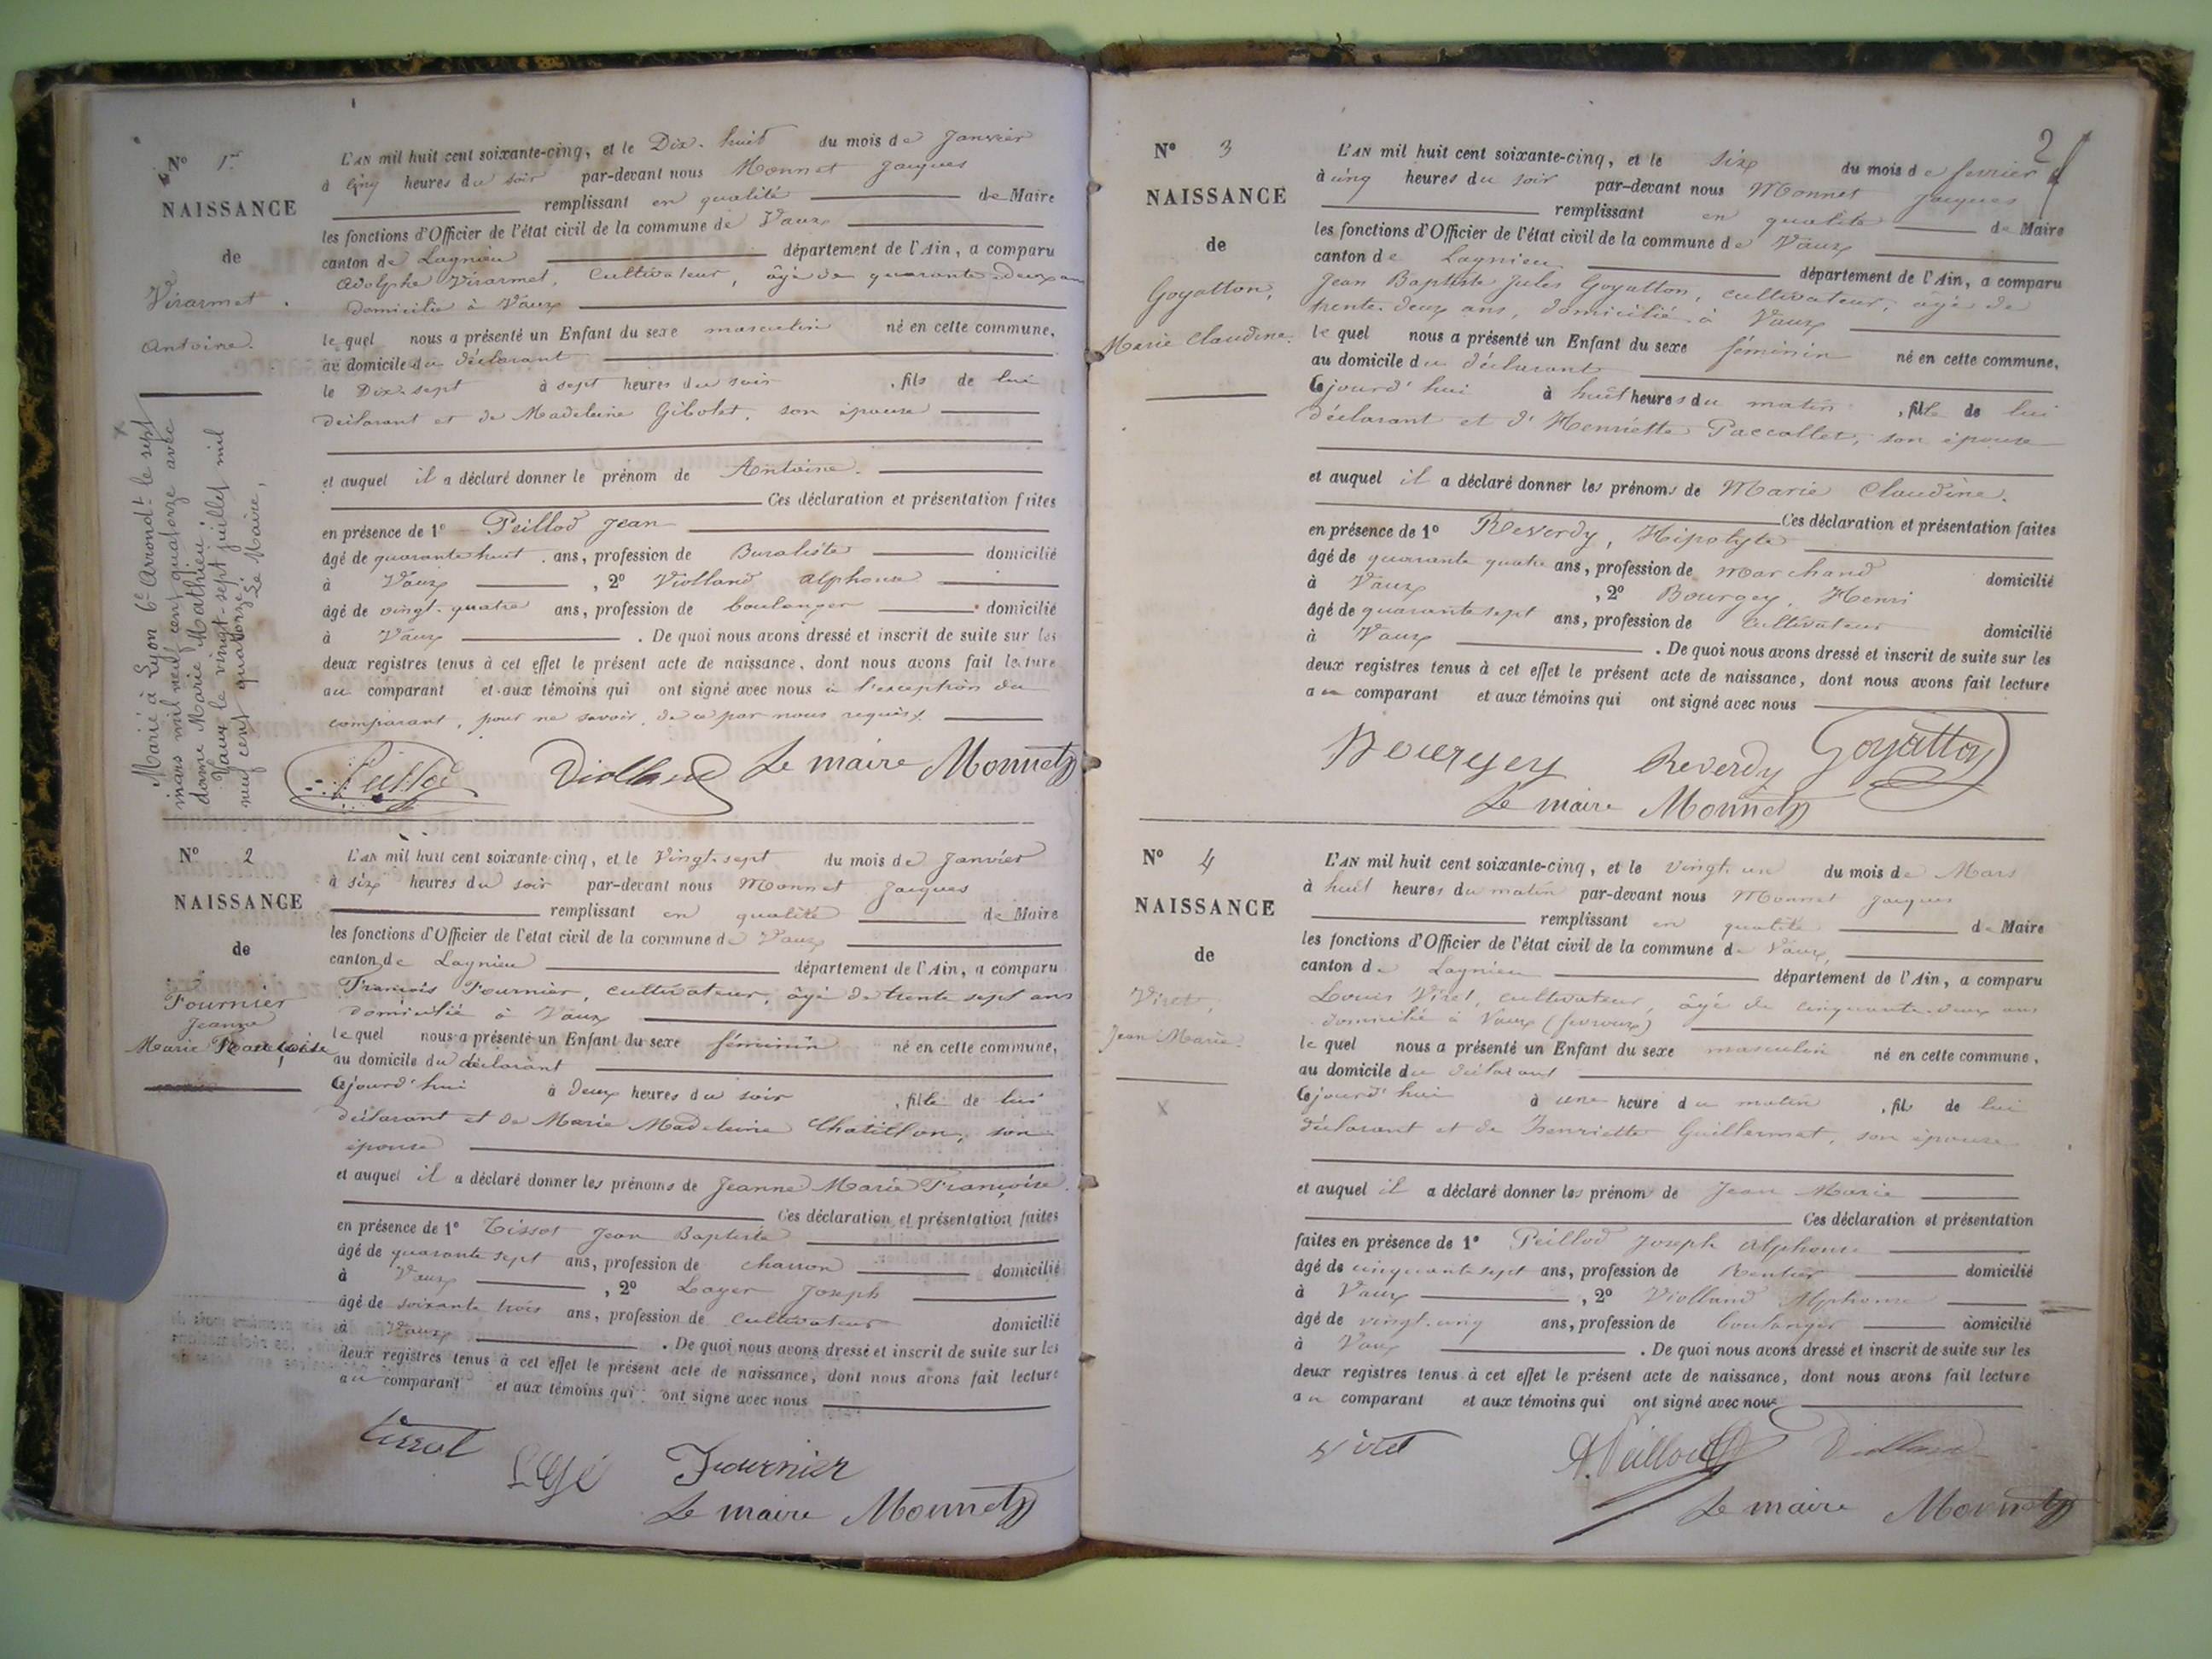 N° 1er
NAISSANCE
de
Virarmet
Antoine.
Marié à Lyon 6e Arrondt le sept
mars mil neuf cent quatorze avec
donne Marie Mathieu.
Vaux le vingt-sept juillet mil
neuf cent quatorze.
Le Maire,
L'AN mil huit cent soixante-cinq, et le Dix-huit du mois de Janvier
à cinq heures du soir par-devant nous Monnet Jacques
remplissant en qualité de Maire
les fonctions d'Officier de l'état civil de la commune de Vaux
canton de Lagnieu département de l'Ain, a comparu
Adolphe Virarmet, Cultivateur, âgé de quarante-deux ans
domicilié à Vaux
lequel nous a présenté un Enfant du sexe masculin né en cette commune,
au domicile du déclarant
le Dix-sept à sept heures du soir, fils de lui
déclarant et de Madeleine Gibolet, son épouse
et auquel il a déclaré donner le prénom de Antoine.
Ces déclaration et présentation faites
en présence de 1° Peillod Jean
âgé de quarante huit ans, profession de Buraliste domicilié
à Vaux, 2° Violland Alphonse
âgé de vingt-quatre ans, profession de boulanger domicilié
à Vaux. De quoi nous avons dressé et inscrit de suite sur les
deux registres tenus à cet effet le présent acte de naissance, dont nous avons fait lecture
au comparant et aux témoins qui ont signé avec nous à l'exception du
comparant, pour ne savoir, de ce par nous requis.
Peillod Violland Le maire Monnet
N° 2
NAISSANCE
de
Fournier
Jeanne
Marie Françoise
L'AN mil huit cent soixante-cinq, et le Vingt-sept du mois de Janvier
à six heures du soir par-devant nous Monnet Jacques
remplissant en qualité de Maire
les fonctions d'Officier de l'état civil de la commune de Vaux
canton de Lagnieu département de l'Ain, a comparu
François Fournier, cultivateur, âgé de trente sept ans
domicilié à Vaux
lequel nous a présenté un Enfant du sexe féminin né en cette commune,
au domicile du déclarant
Cejourd'hui à deux heures du soir, fille de lui
déclarant et de Marie Madeleine Chatillon, son
épouse
et auquel il a déclaré donner les prénoms de Jeanne Marie Françoise.
Ces déclaration et présentation faites
en présence de 1° Tissot Jean Baptiste
âgé de quarante sept ans, profession de charron domicilié
à Vaux, 2° Joseph
âgé de soixante trois ans, profession de Cultivateur domicilié
à Vaux. De quoi nous avons dressé et inscrit de suite sur les
deux registres tenus à cet effet le présent acte de naissance, dont nous avons fait lecture
au comparant et aux témoins qui ont signé avec nous
tissot
Fournier
Le maire Monnet
2
N° 3
NAISSANCE
de
Goyatton,
Marie Claudine.
L'AN mil huit cent soixante-cinq, et le six du mois de fevrier
à cinq heures du soir par-devant nous Monnet Jacques
remplissant en qualité de Maire
les fonctions d'Officier de l'état civil de la commune de Vaux
canton de Lagnieu département de l'Ain, a comparu
Jean Baptiste Jules Goyatton, cultivateur, âgé de
trente-deux ans, domicilié à Vaux
lequel nous a présenté un Enfant du sexe féminin né en cette commune,
au domicile du déclarant
Cejourd'hui à huit heures du matin, fille de lui
déclarant et d'Henriette Paccallet, son épouse
et auquel il a déclaré donner les prénoms de Marie Claudine.
Ces déclaration et présentation faites
en présence de 1° Reverdy, Hipolyte
âgé de quarante quatre ans, profession de marchand domicilié
à Vaux, 2° Bourgey, Henri
âgé de quarante sept ans, profession de Cultivateur domicilié
à Vaux. De quoi nous avons dressé et inscrit de suite sur les
deux registres tenus à cet effet le présent acte de naissance, dont nous avons fait lecture
au comparant et aux témoins qui ont signé avec nous
Bourgey Reverdy Goyatton
Le maire Monnet
N° 4
NAISSANCE
de
Viret,
Jean Marie.
L'AN mil huit cent soixante-cinq, et le vingt-un du mois de Mars
à huit heures du matin par-devant nous Monnet Jacques
remplissant en qualité de Maire
les fonctions d'Officier de l'état civil de la commune de Vaux,
canton de Lagnieu département de l'Ain, a comparu
Louis Viret, cultivateur, âgé de cinquante-deux ans
domicilié à Vaux
lequel nous a présenté un Enfant du sexe masculin né en cette commune,
au domicile du déclarant
Cejourd'hui à une heure du matin, fils de lui
déclarant et de henriette Guillermet, son épouse
et auquel il a déclaré donner les prénom de Jean Marie
Ces déclaration et présentation
faites en présence de 1° Peillod Joseph Alphonse
âgé de cinquante sept ans, profession de Rentier domicilié
à Vaux, 2° Violland Alphonse
âgé de vingt-cinq ans, profession de boulanger domicilié
à Vaux. De quoi nous avons dressé et inscrit de suite sur les
deux registres tenus à cet effet le présent acte de naissance, dont nous avons fait lecture
au comparant et aux témoins qui ont signé avec nous
Viret A. Peillod Violland
Le maire Monnet